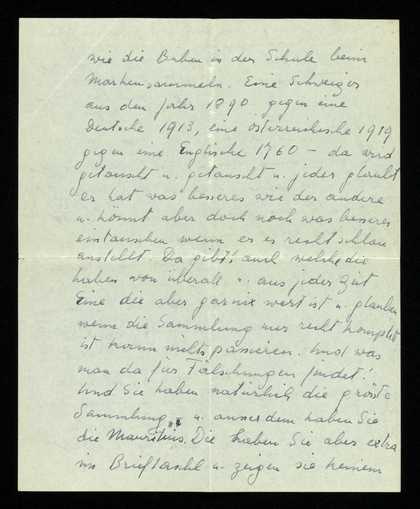 wie die Buben in der Schule beim
Markensammeln. Eine Schweizer
aus dem Jahr 1890 gegen eine
Deutsche 1913, eine österreichische 1919
gegen eine Englische 1760 – da wird
getauscht u. getauscht u. jeder glaubt
er hat was besseres wie der andere
u. könnt aber doch noch was besseres
eintauschen wenn er es recht schlau
anstellt. Da gibt's auch welche, die
haben von überall u. aus jeder Zeit
Eine die aber garnix wert ist u. glauben
wenn die Sammlung nur recht komplet
ist kann nichts passieren. Und was
man da für Fälschungen findet!
Und Sie haben natürlich die grösste
Sammlung, u. ausserdem haben Sie
die Mauritius. Die haben Sie aber extra
im Brieftaschl u. zeigen sie keinem